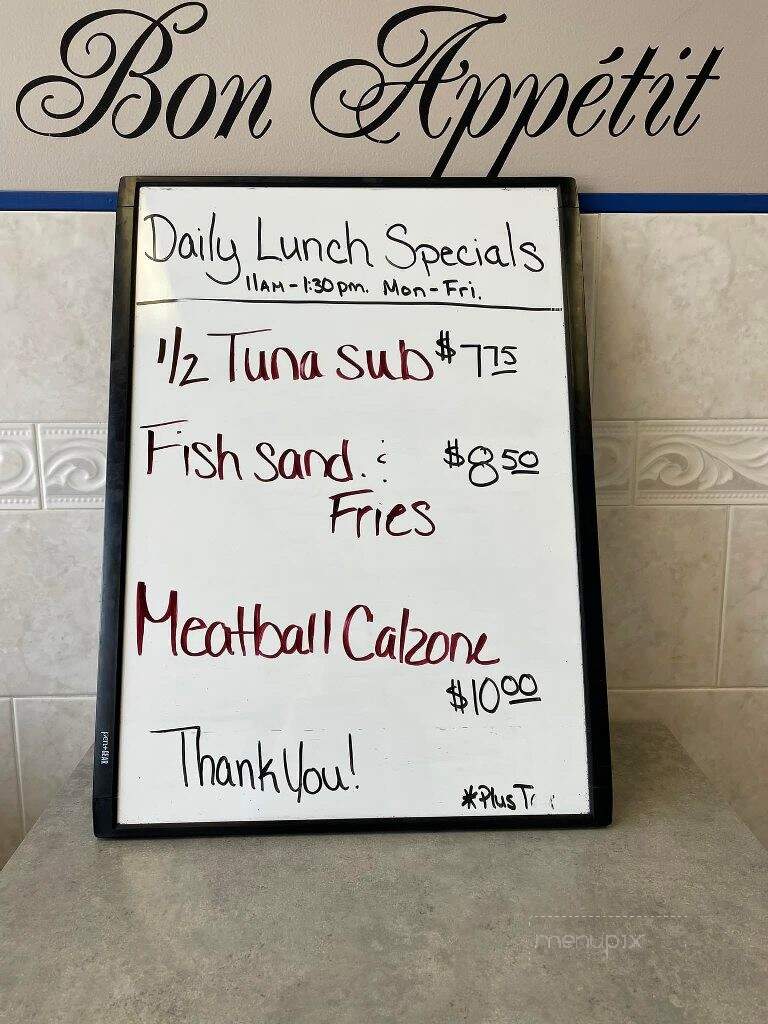 Bon Appétit
Daily Lunch Specials
11AM-1:30pm. Mon-Fri.
1/2 Tuna Sub $7.75
Fish Sand. & $8.50
Fries
Meatball Calzone
$10.00
Thank You!
*Plus
pen+gear
menupix